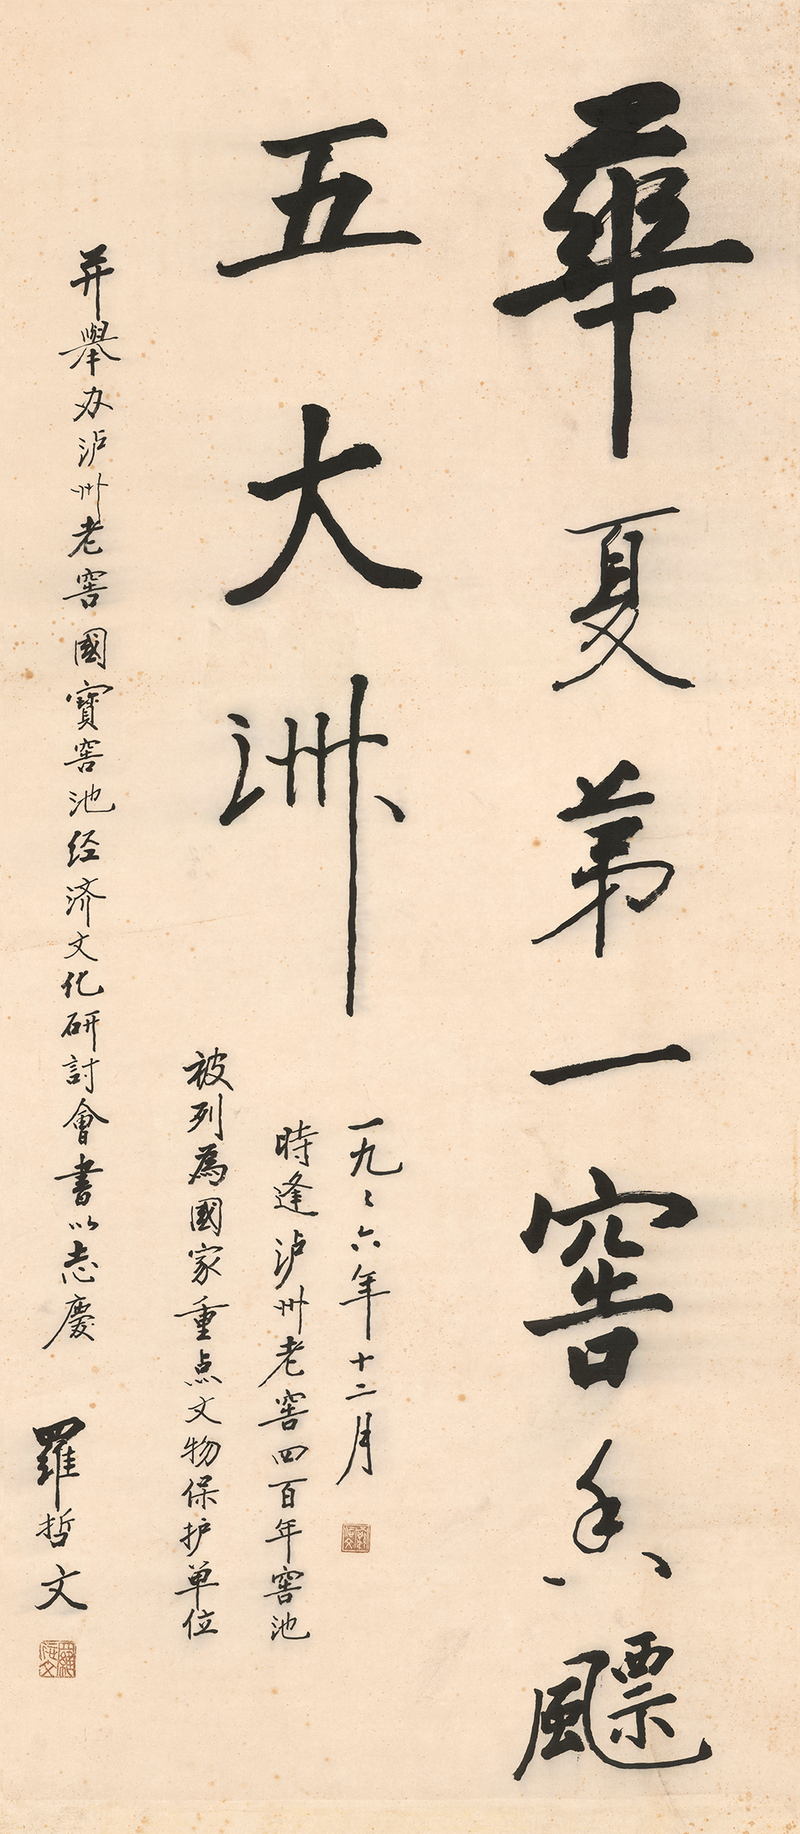 華夏第一窖香飃
五大洲
一九〻六年十二月
時逢泸州老窖四百年窖池
被列為國家重点文物保护单位
并舉办泸州老窖國寶窖池经济文化研討會書以志慶
羅哲文